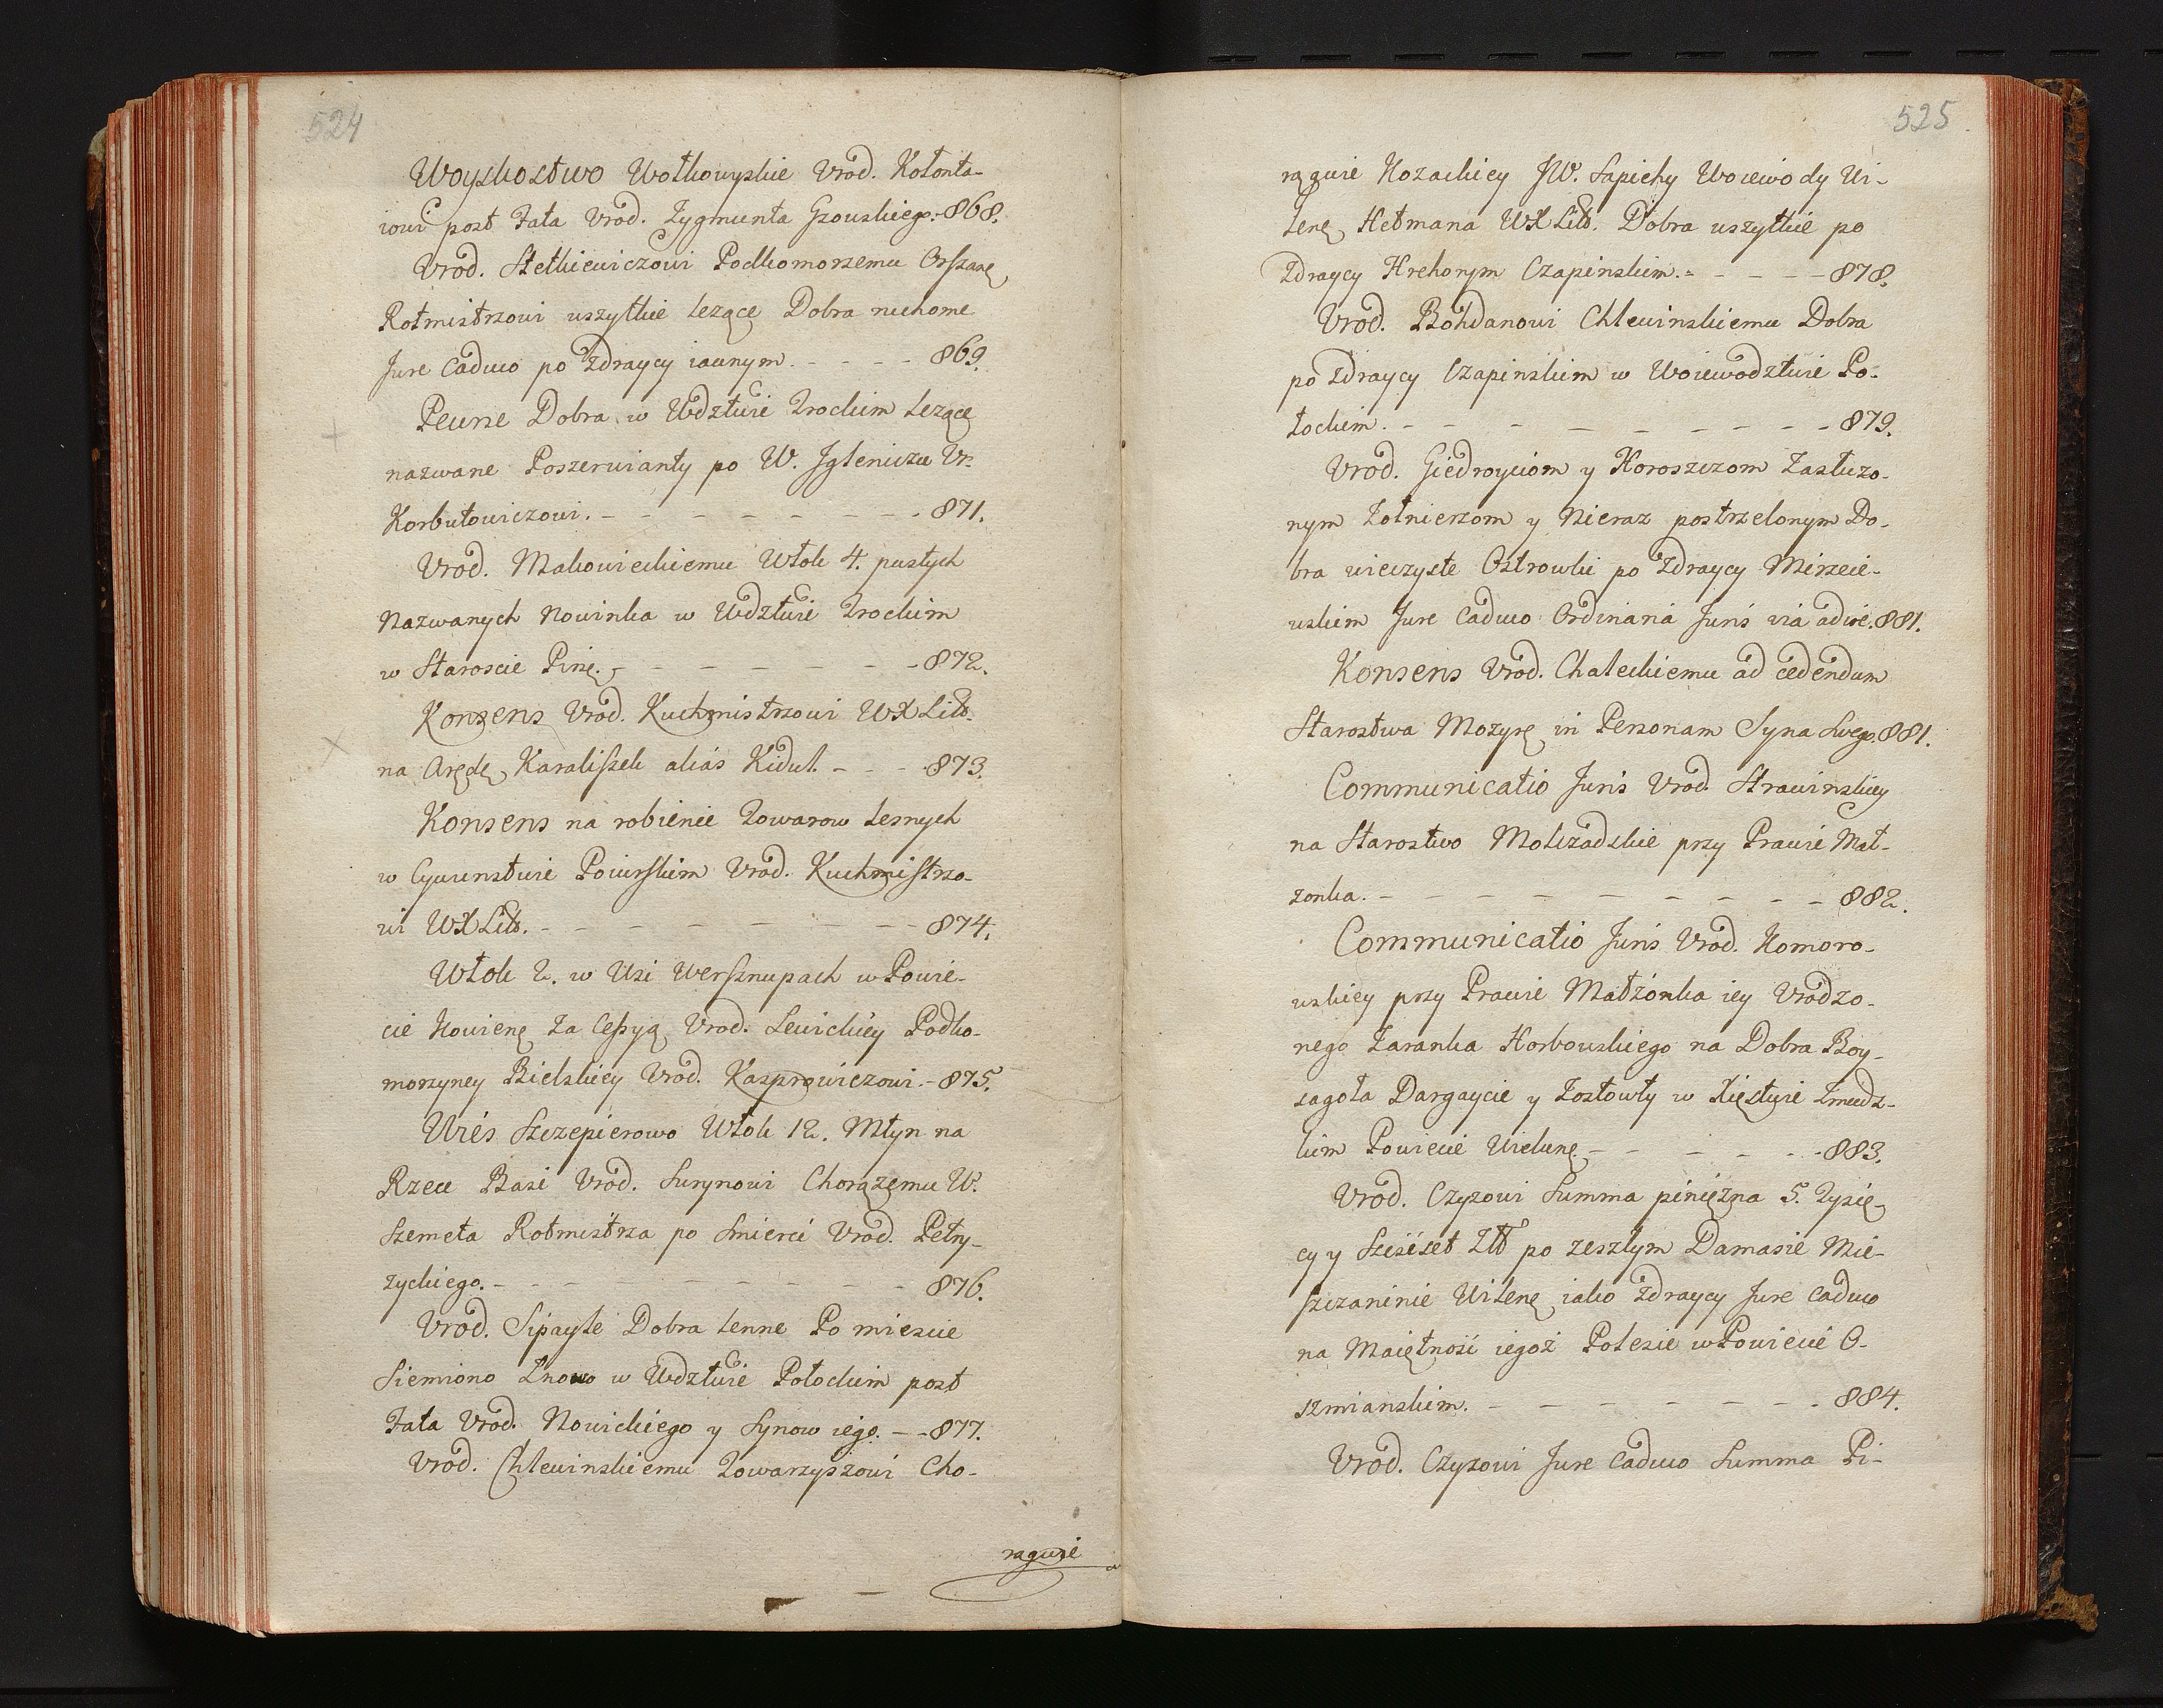 524
Woyskostwo Wołkowyskie Urod. Kołonta-
iowi post Fata Urod. Zygmunta Gzowskiego. 868.
Urod. Stetkiewiczowi Podkomorzemu Orszanę
Rotmistrzowi wszytkie lezące Dobra ruchome
Jure Caduco po Zdraycy iawnym. - - - - 869.
Pewne Dobra w Wdztwie Trockim lezące
nazwane Poszerwianty po W. Igleniczu Ur.
Korbutowiczowi. - - - - - - - - 871.
Urod. Makowieckiemu Włok 4. pustych
Nazwanych Nowinka w Wdztwie Trockim
w Staroscie Pinę. - - - - - - - 872.
Konsens Urod. Kuchmistrzowi WX Litt.
na Arędę Karaliszek alias Kidul. - - - 873.
Konsens na robienie Towarow Lesnych
w Cywunstwie Powirskim Urod. Kuchmistrzo-
wi WX Litt. - - - - - - - - 874.
Włok 2. w Wsi Wersznupach w Powie-
cie Kowienę za Cessyą Urod. Lewickiey Podko-
morzyney Bielskiey Urod. Kasprowiczowi. - 875.
Wieś Szczepierowo Włok 12. Młyn na
Rzece Basi Urod. Surynowi Chorązemu W.
Szemeta Rotmistrza po Smierci Urod. Petry-
zyckiego. - - - - - - - - - 876.
Urod. Sipayle Dobra Lenne Po miescie
Siemiono Lnowo w Wdztwie Połockim post
Fata Urod. Nowickiego y Synow iego. - - 877.
Urod. Chlewinskiemu Towarzyszowi Cho-
rągwie
525
rągwie Kozackiey JW. Sapiehy Woiewody Wi-
lenę Hetmana WX Litt. Dobra wszytkie po
Zdraycy Hrehorym Czapinskim. - - - - 878.
Urod. Bohdanowi Chlewinskiemu Dobra
po Zdraycy Czapinskim w Woiewodztwie Po-
łockim. - - - - - - - - - 879.
Urod. Giedroyciom y Horoszczom Zasłuzo-
nym Zołnierzom y Nieraz postrzelonym Do-
bra wieczyste Ostrowki po Zdraycy Mirzeie-
wskim Jure Caduco Ordinaria Juris via adire. 881.
Konsens Urod. Chaleckiemu ad cedendum
Starostwa Mozyrę in Personam Syna Swego. 881.
Communicatio Juris Urod. Strawinskiey
na Starostwo Mołczadzkie przy Prawie Mał-
zonka. - - - - - - - - - 882.
Communicatio Juris Urod. Komoro-
wskiey przy Prawie Małzonka iey Urodzo-
nego Zaranka Horbowskiego na Dobra Boy-
sagoła Dargaycie y Zostowty w Xięstwie Zmudz-
kim Powiecie Wielunę. - - - - - - 883.
Urod. Czyzowi Summa pinięzna 5. Tysię-
cy y Szesciset Złł po zeszlym Damasie Mie-
szczaninie Wilenę iako Zdraycy Jure Caduco
na Maiętnosc iegoż Polesie w Powiecie O-
szmianskim. - - - - - - - 884.
Urod. Czyzowi Jure Caduco Summa Pi-